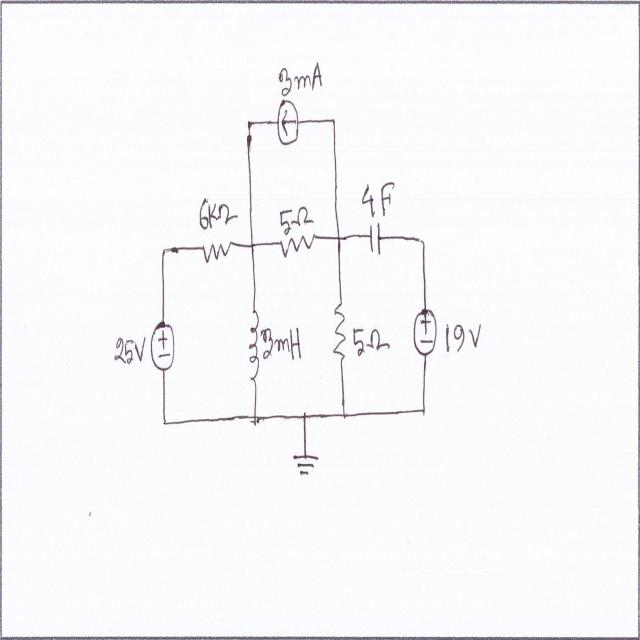 3mA
6KΩ
5Ω
4F
25V
3mH
5Ω
19V